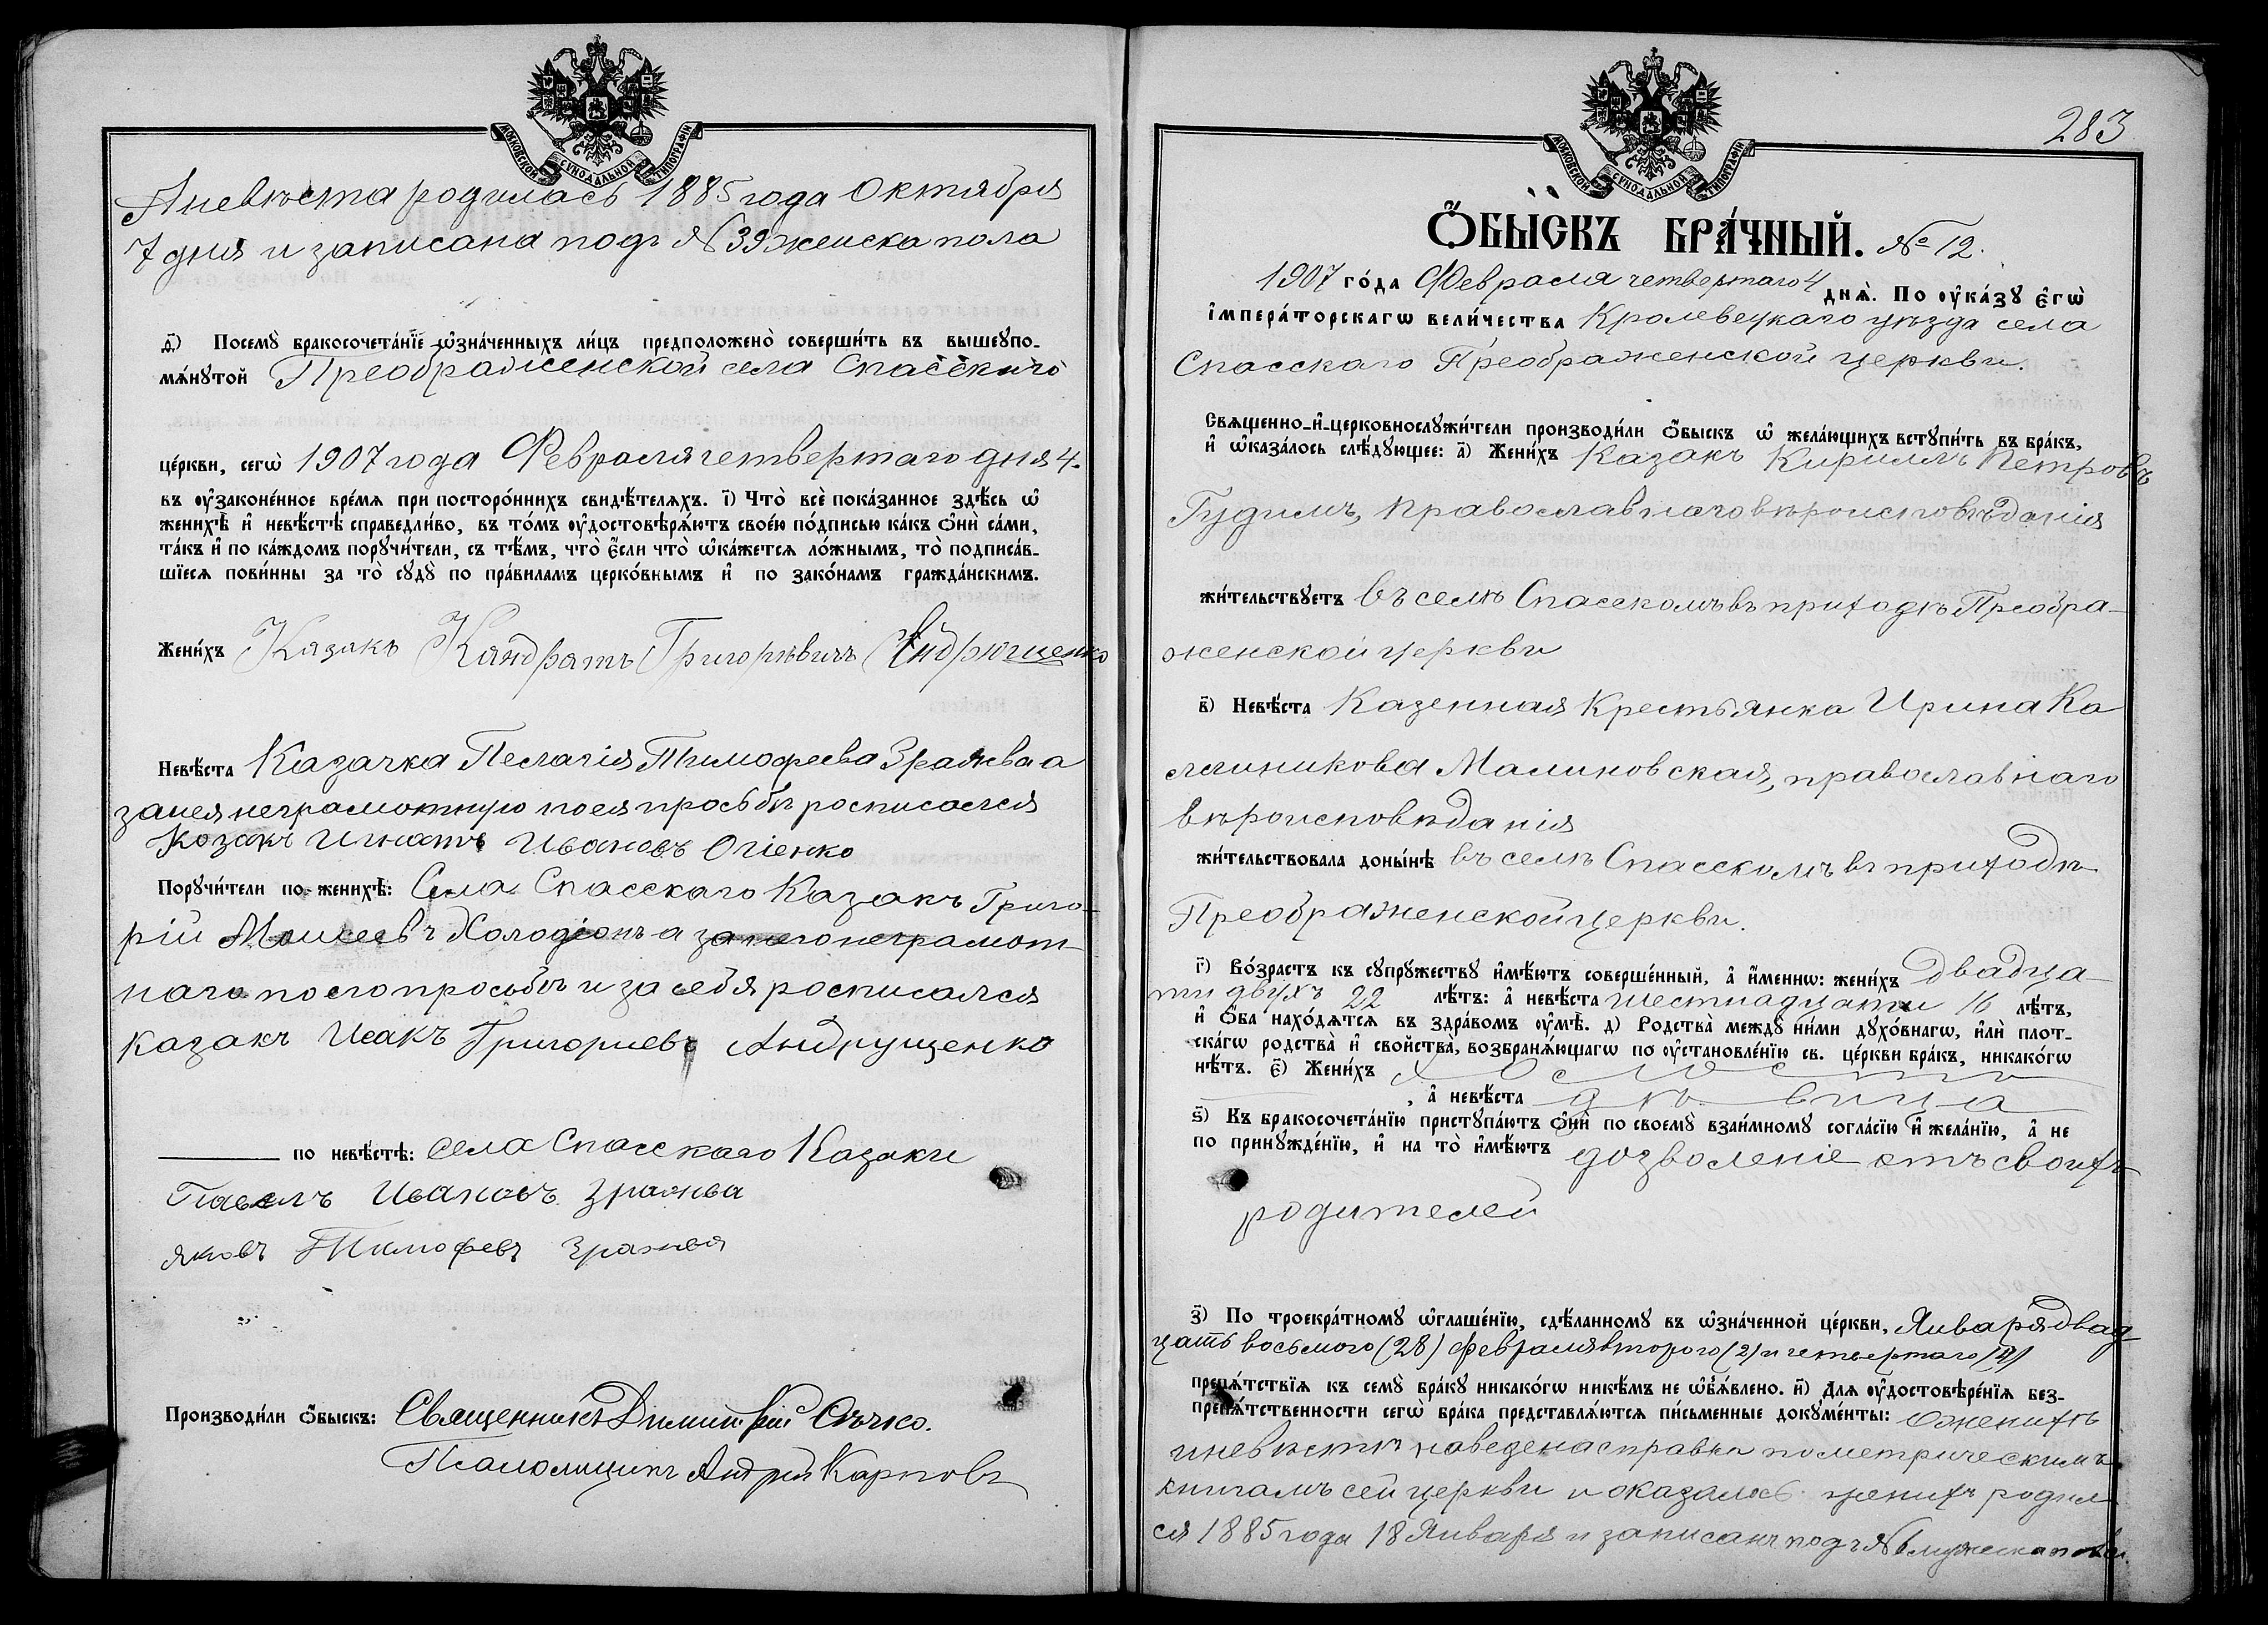 МОСКОВСКОЙ СѴНОДАЛЬНОЙ ТИПОГРАФІИ
А невѣста родилась 1885 года Октября
7 дня и записана подъ № 39 женска пола
д҃) Посемꙋ̀ бракосочета́нїе ѡ҆зна́ченныхъ ли́цъ предположено̀ соверши́ть въ вышеꙋпо-
мѧ́нꙋтой Преображенской села Спасскаго
це́ркви, сегѡ̀ 1907 года Февраля четвертаго дня 4.
въ ᲂу҆законе́нное вре́мѧ при посторо́ннихъ свидѣ́телѧхъ. і҃) Что̀ всѐ пока́занное здѣ́сь ѡ҆
женихѣ̀ и҆ невѣ́стѣ справедли́во, въ то́мъ ᲂу҆достовѣрѧ́ютъ свое́ю по́дписью ка́къ ѻ҆нѝ са́ми,
та́къ и҆ по ка́ждомъ порꙋчи́тели, съ тѣ́мъ, что̀ є҆́сли что̀ ѡ҆ка́жетсѧ ло́жнымъ, то̀ подписа́в-
шїесѧ пови́нны за то̀ сꙋдꙋ̀ по пра́виламъ церко́внымъ и҆ по зако́намъ гражда́нскимъ.
Жени́хъ Казакъ Кандратъ Григорѣвичъ Андрющенко
Невѣ́ста Казачка Пелагія Тимофеева Зражва а
за нея неграмотную по ея просьбѣ росписался
Козакъ Игнатъ Ивановъ Огіенко
Порꙋчи́тели по женихѣ̀: Села Спасскаго Казакъ Григо-
рій Моисеевъ Холодіонъ а за него неграмот-
наго по его просьбѣ и за себя росписался
казакъ Исакъ Григориевъ Андрущенко
по невѣ́стѣ: села Спасскаго Казаки
Павелъ Ивановъ Зражва
Яковъ Тимофевъ Зражва
Производи́ли ѻ҆́быскъ: Священникъ Димитрій
Псаломщикъ Андрей Карповъ
МОСКОВСКОЙ СѴНОДАЛЬНОЙ ТИПОГРАФІИ
283
Ѻ҆́БЫСКЪ БРА́ЧНЫЙ. № 12.
1907 го́да Февраля четвертаго 4 днѧ̀. По ᲂу҆ка́зꙋ є҆гѡ̀
і҆мпера́торскагѡ вели́чества Кролевецкаго уѣзда села
Спасскаго Преображенской церкви.
Свѧщенно-и҆-церковнослꙋжи́тели производи́ли ѻ҆́быскъ ѡ҆ жела́ющихъ встꙋпи́ть въ бра́къ,
и҆ ѡ҆каза́лось слѣ́дꙋющее: а҃) Жени́хъ Казакъ Кириллъ Петровъ
Гудимъ, православнаго вѣроисповѣданія
жи́тельствꙋетъ въ селѣ Спасскомъ въ приходѣ Преобра-
женской церкви
в҃) Невѣ́ста Казенная Крестьянка Ирина Ка
лениикова Малиновская, православнаго
вѣроисповѣданія
жи́тельствовала доны́нѣ въ селѣ Спасскомъ въ приходѣ
Преображенской церкви.
г҃) Во́зрастъ къ сꙋпрꙋ́жествꙋ и҆мѣ́ютъ соверше́нный, а҆ и҆́меннѡ: жени́хъ двадца-
ти двухъ 22 лѣ́тъ: а҆ невѣ́ста шестнадцати 16 лѣ́тъ,
и҆ ѻ҆́ба нахо́дѧтсѧ въ здра́вомъ ᲂу҆мѣ̀. д) Родства̀ междꙋ̀ ни́ми дꙋхо́внагѡ, и҆лѝ плот-
ска́гѡ родства̀ и҆ сво́йства, возбранѧ́ющагѡ по ᲂу҆становле́нїю св. це́ркви бра́къ, никако́гѡ
нѣ́тъ. є҃) Жени́хъ холостъ
, а҆ невѣ́ста дѣвица
ѕ҃) Къ бракосочета́нїю пристꙋпа́ютъ ѻ҆нѝ по своемꙋ̀ взаи́мномꙋ согла́сїю и҆ жела́нїю, а҆ не
по принꙋжде́нїю, и҆ на то̀ и҆мѣ́ютъ дозволеніе отъ своихъ
родителей
з҃) По троекра́тномꙋ ѡ҆глаше́нїю, сдѣ́ланномꙋ въ ѡ҆зна́ченной це́ркви, Января двад
цать восьмого (28) февраля второго (2) и четвертаго (4)
препѧ́тствїѧ къ семꙋ̀ бра́кꙋ никако́гѡ никѣ́мъ не ѡ҆б̾ѧ́влено. и҃) Длѧ ᲂу҆достовѣре́нїѧ без-
препѧ́тственности сегѡ̀ бра́ка представлѧ́ютсѧ пи́сьменные докꙋме́нты: о женихѣ
и невѣстѣ наведена справка по метрическимъ
книгамъ сей церкви и оказалось женихъ родил
ся 1885 года 18 Января и записанъ подъ № 6 мужеска пола.